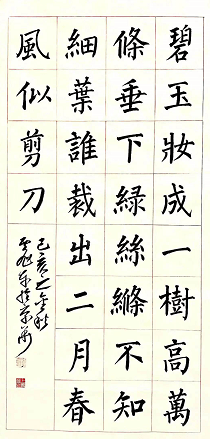 碧玉妝成一樹高萬
條垂下緑絲縧不知
細葉誰裁出二月春
風似剪刀
己亥之金秋